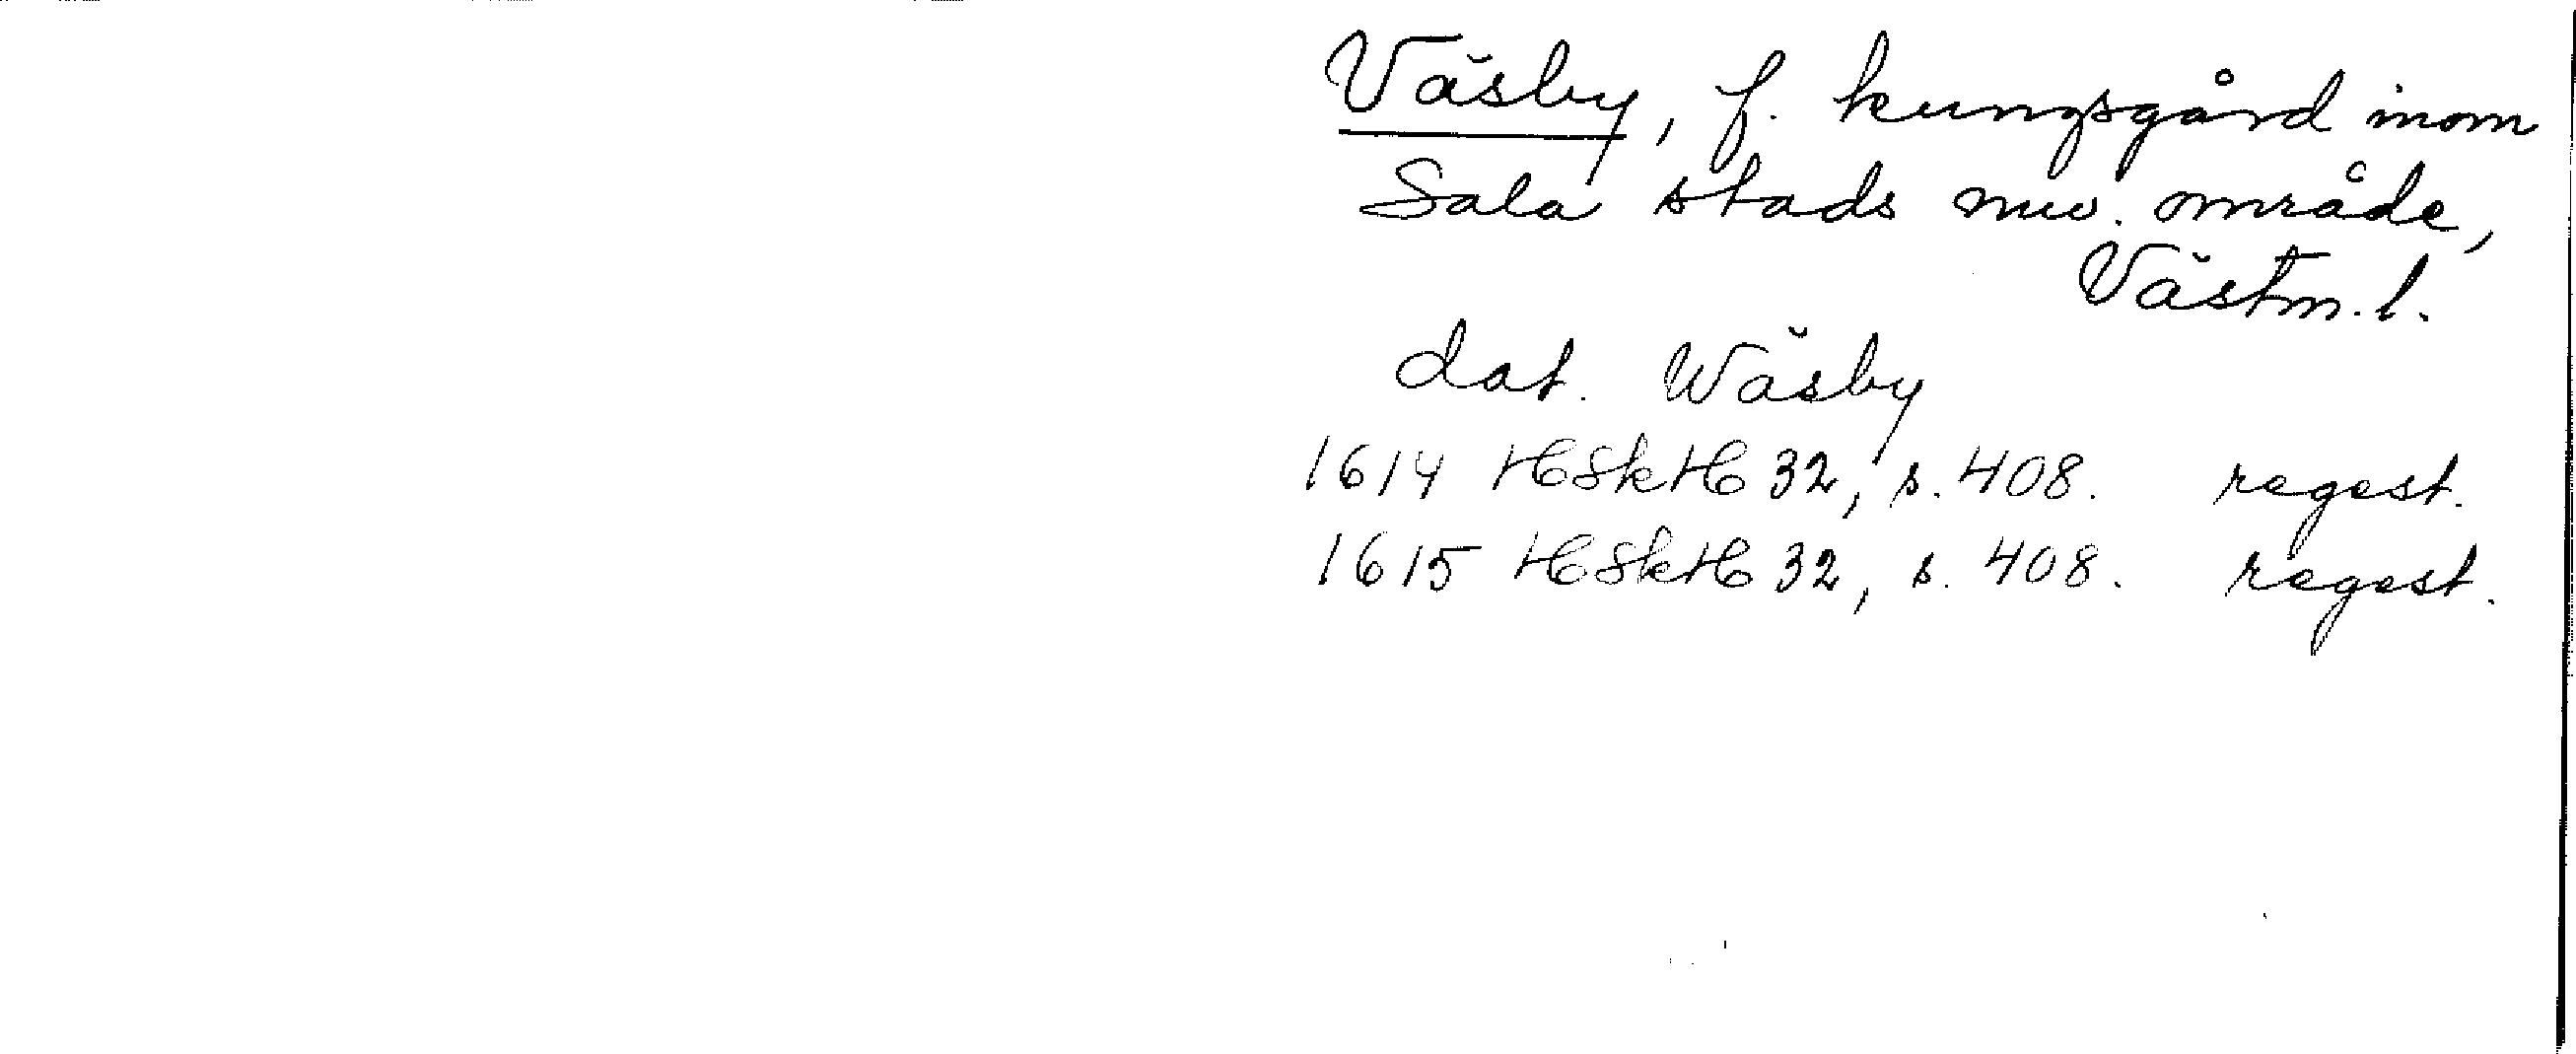 Väsby, f. kungsgård inom
Sala stads nuv. område,
Västm. l.
dat. Wäsby
1614 HSkH 32, s. 408. regest.
1615 HSkH 32, s. 408. regest.